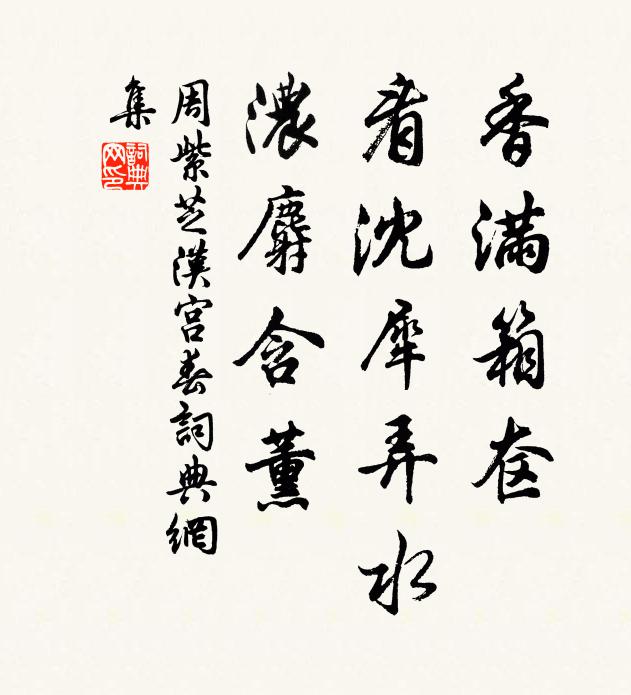 香滿箱奁
看沈犀弄水
濃麝含薰
周紫芝漢宮春詞典網
集
詞典
网印